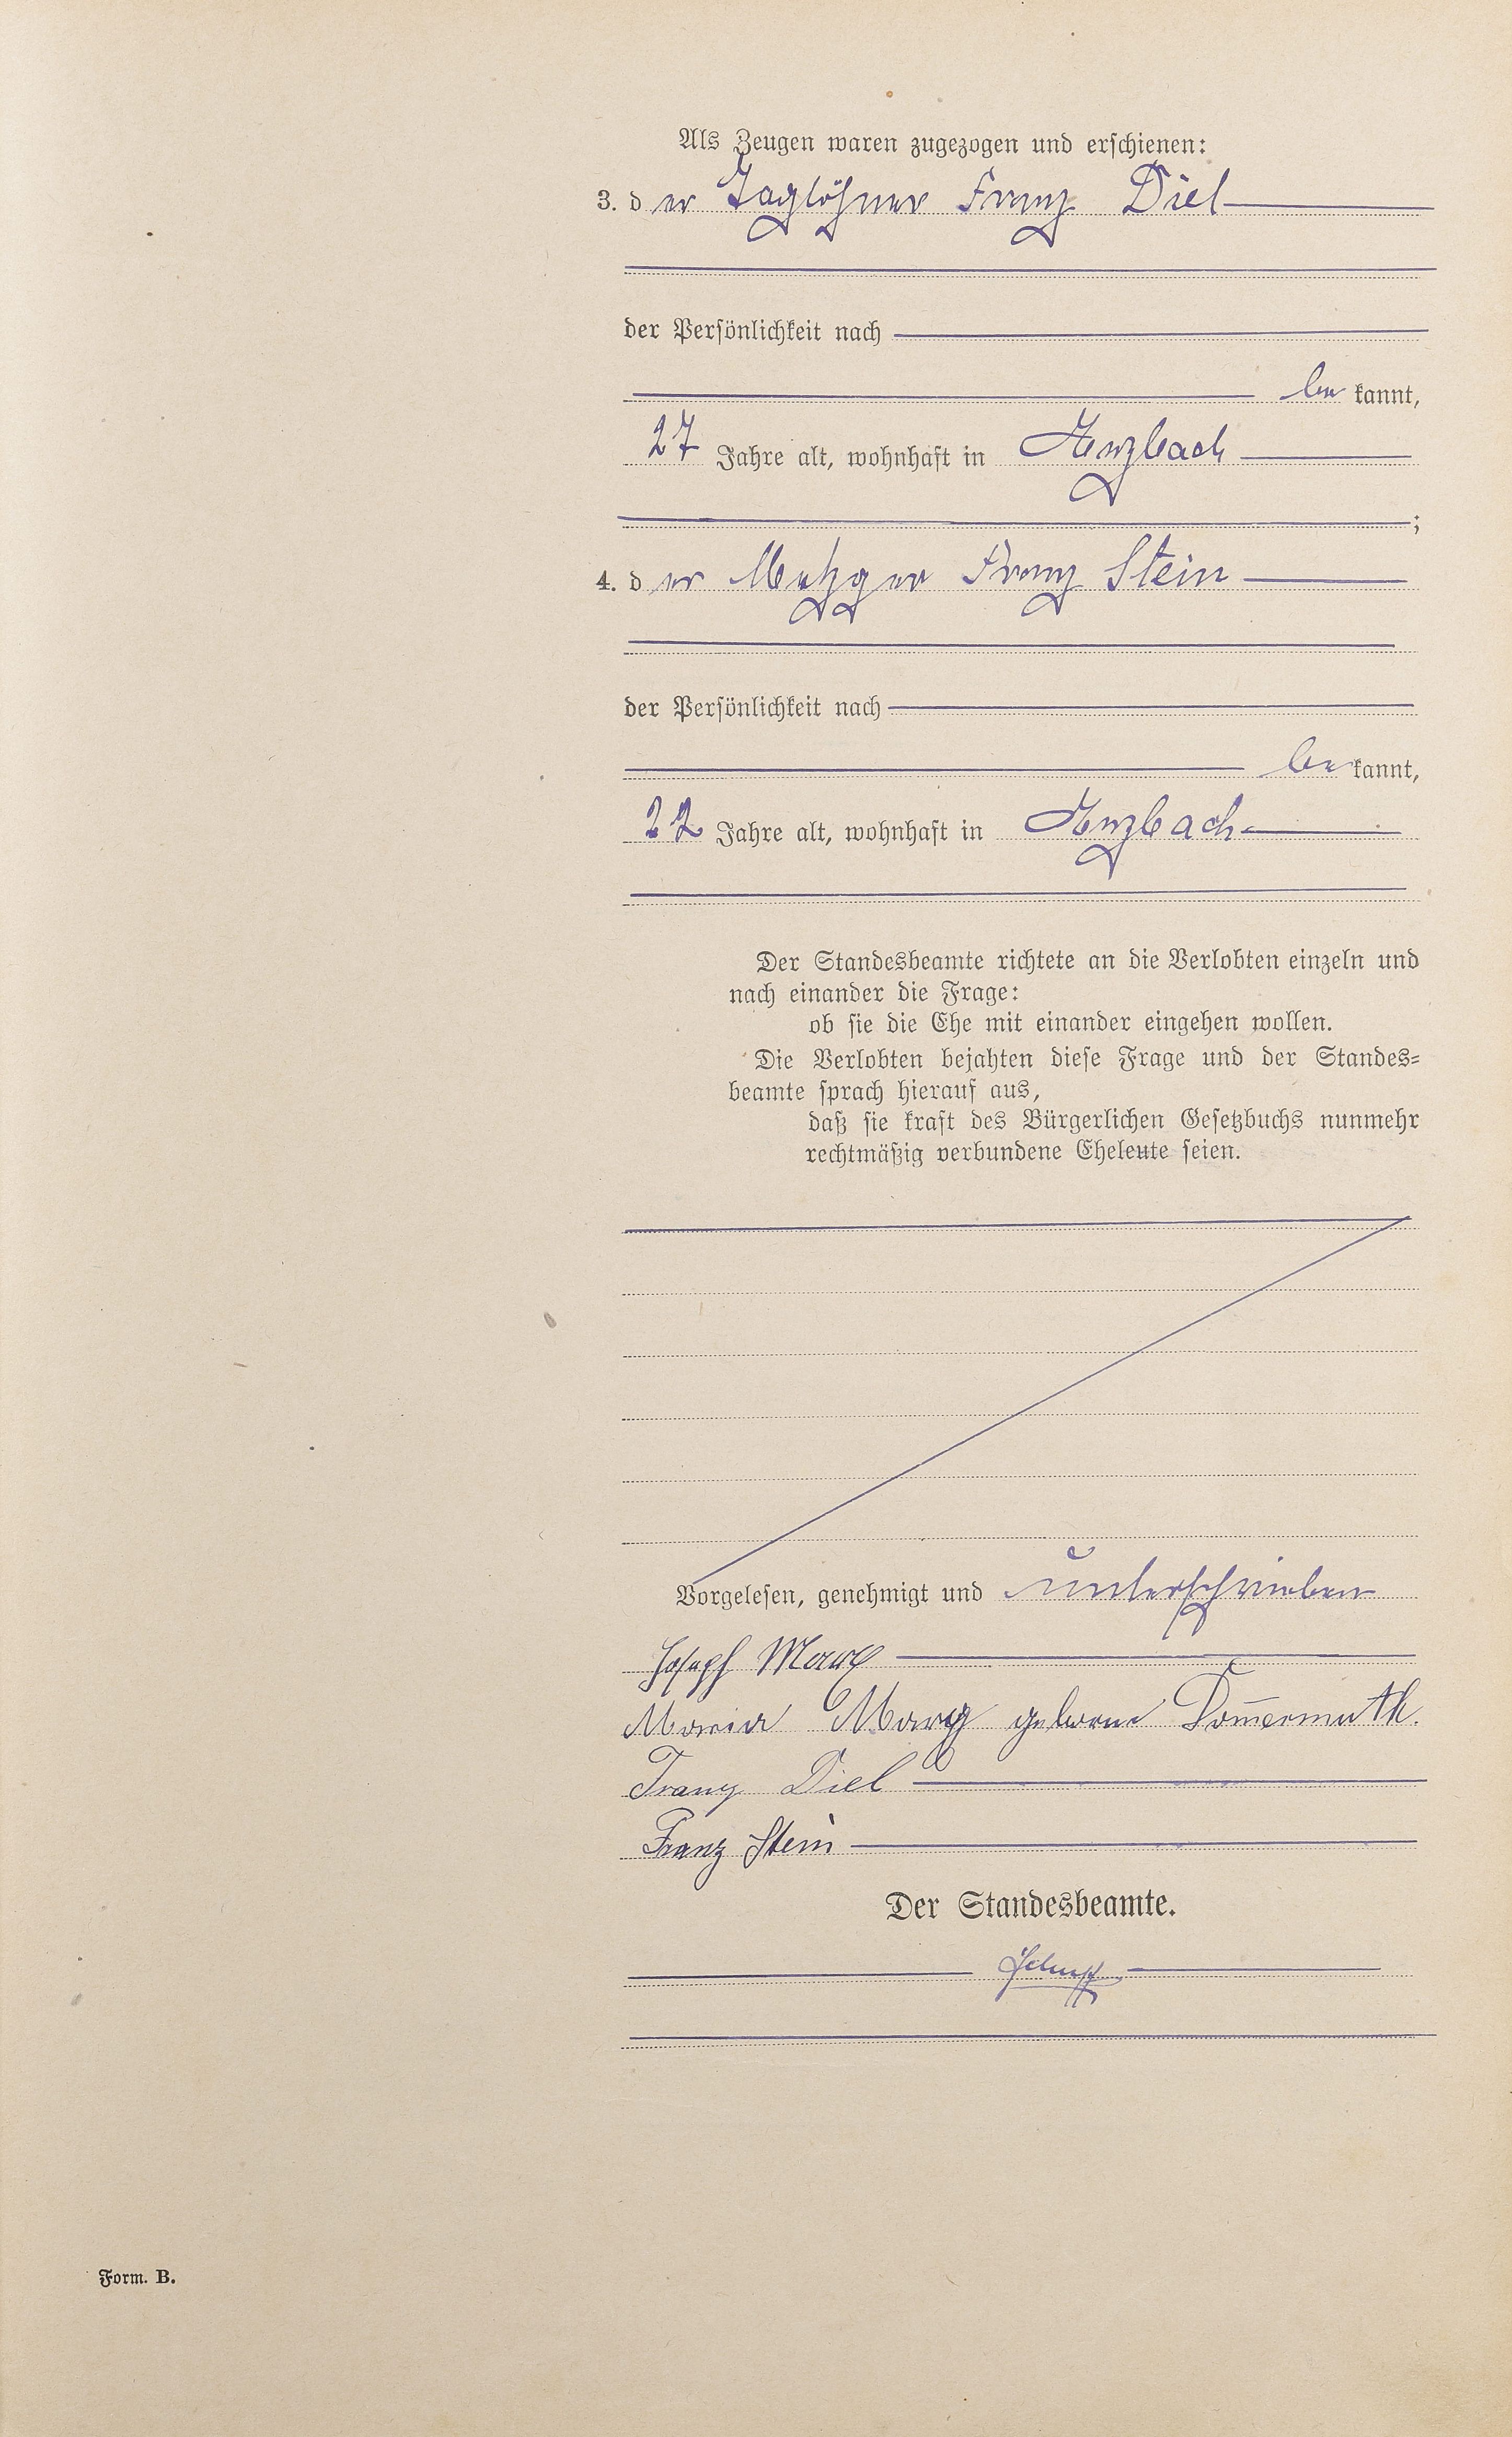 Als Zeugen waren zugezogen und erschienen:
3. der Taglöhner Franz Diel
der Persönlichkeit nach
be kannt,
27 Jahre alt, wohnhaft in Arzbach
;
4. der Metzger Franz Stein
der Persönlichkeit nach
be kannt,
22 Jahre alt, wohnhaft in Arzbach
Der Standesbeamte richtete an die Verlobten einzeln und
nach einander die Frage:
ob sie die Ehe mit einander eingehen wollen.
Die Verlobten bejahten diese Frage und der Standes=
beamte sprach hierauf aus,
daß sie kraft des Bürgerlichen Gesetzbuchs nunmehr
rechtmäßig verbundene Eheleute seien.
Vorgelesen, genehmigt und unterschrieben
Joseph Marx
Maria Marx geborne Dom̅ermuth.
Franz Diel
Franz Stein
Der Standesbeamte.
Form. B.